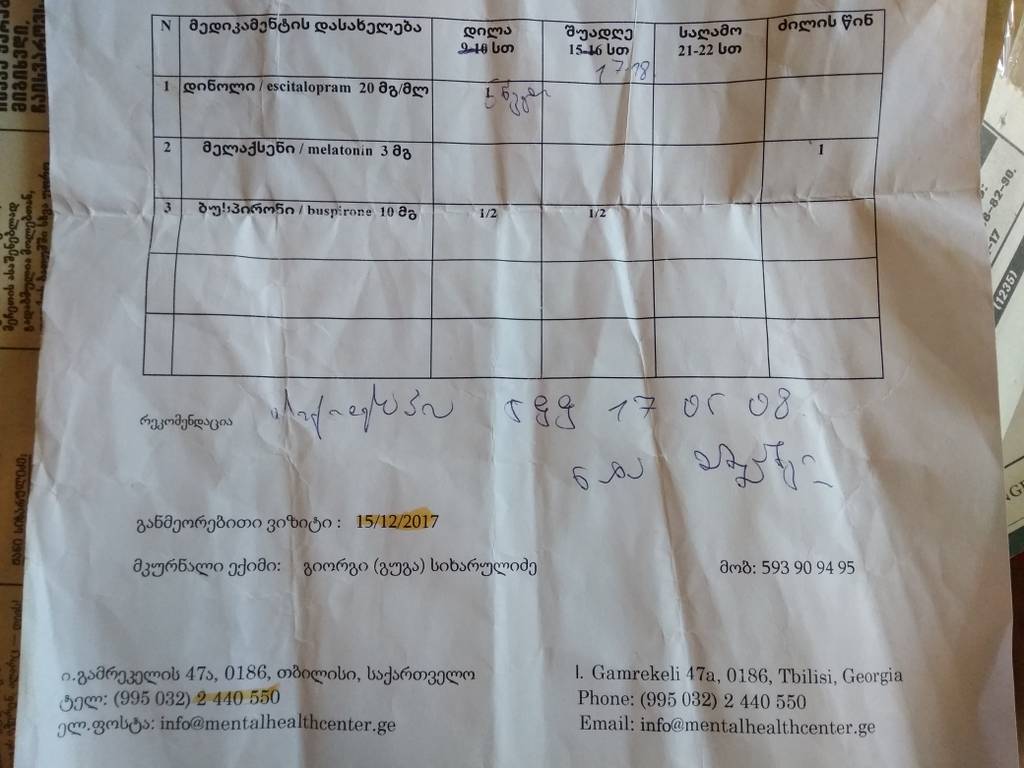 N მედიკამენტის დასახელება დილა 9-10 სთ შუადღე 15-16 სთ 17-18 საღამო 21-22 სთ ძილის წინ
1 დინოლი / escitalopram 20 მგ/მლ 1 წვეთი
2 მელაქსენი / melatonin 3 მგ 1
3 ბუსპირონი / buspirone 10 მგ 1/2 1/2
რეკომენდაცია 599 17 05 08
განმეორებითი ვიზიტი : 15/12/2017
მკურნალი ექიმი: გიორგი (გუგა) სიხარულიძე მობ: 593 90 94 95
ი.გამრეკელის 47ა, 0186, თბილისი, საქართველო
ტელ: (995 032) 2 440 550
ელ.ფოსტა: info@mentalhealthcenter.ge
I. Gamrekeli 47a, 0186, Tbilisi, Georgia
Phone: (995 032) 2 440 550
Email: info@mentalhealthcenter.ge
8-82-90.
-17
(1235)